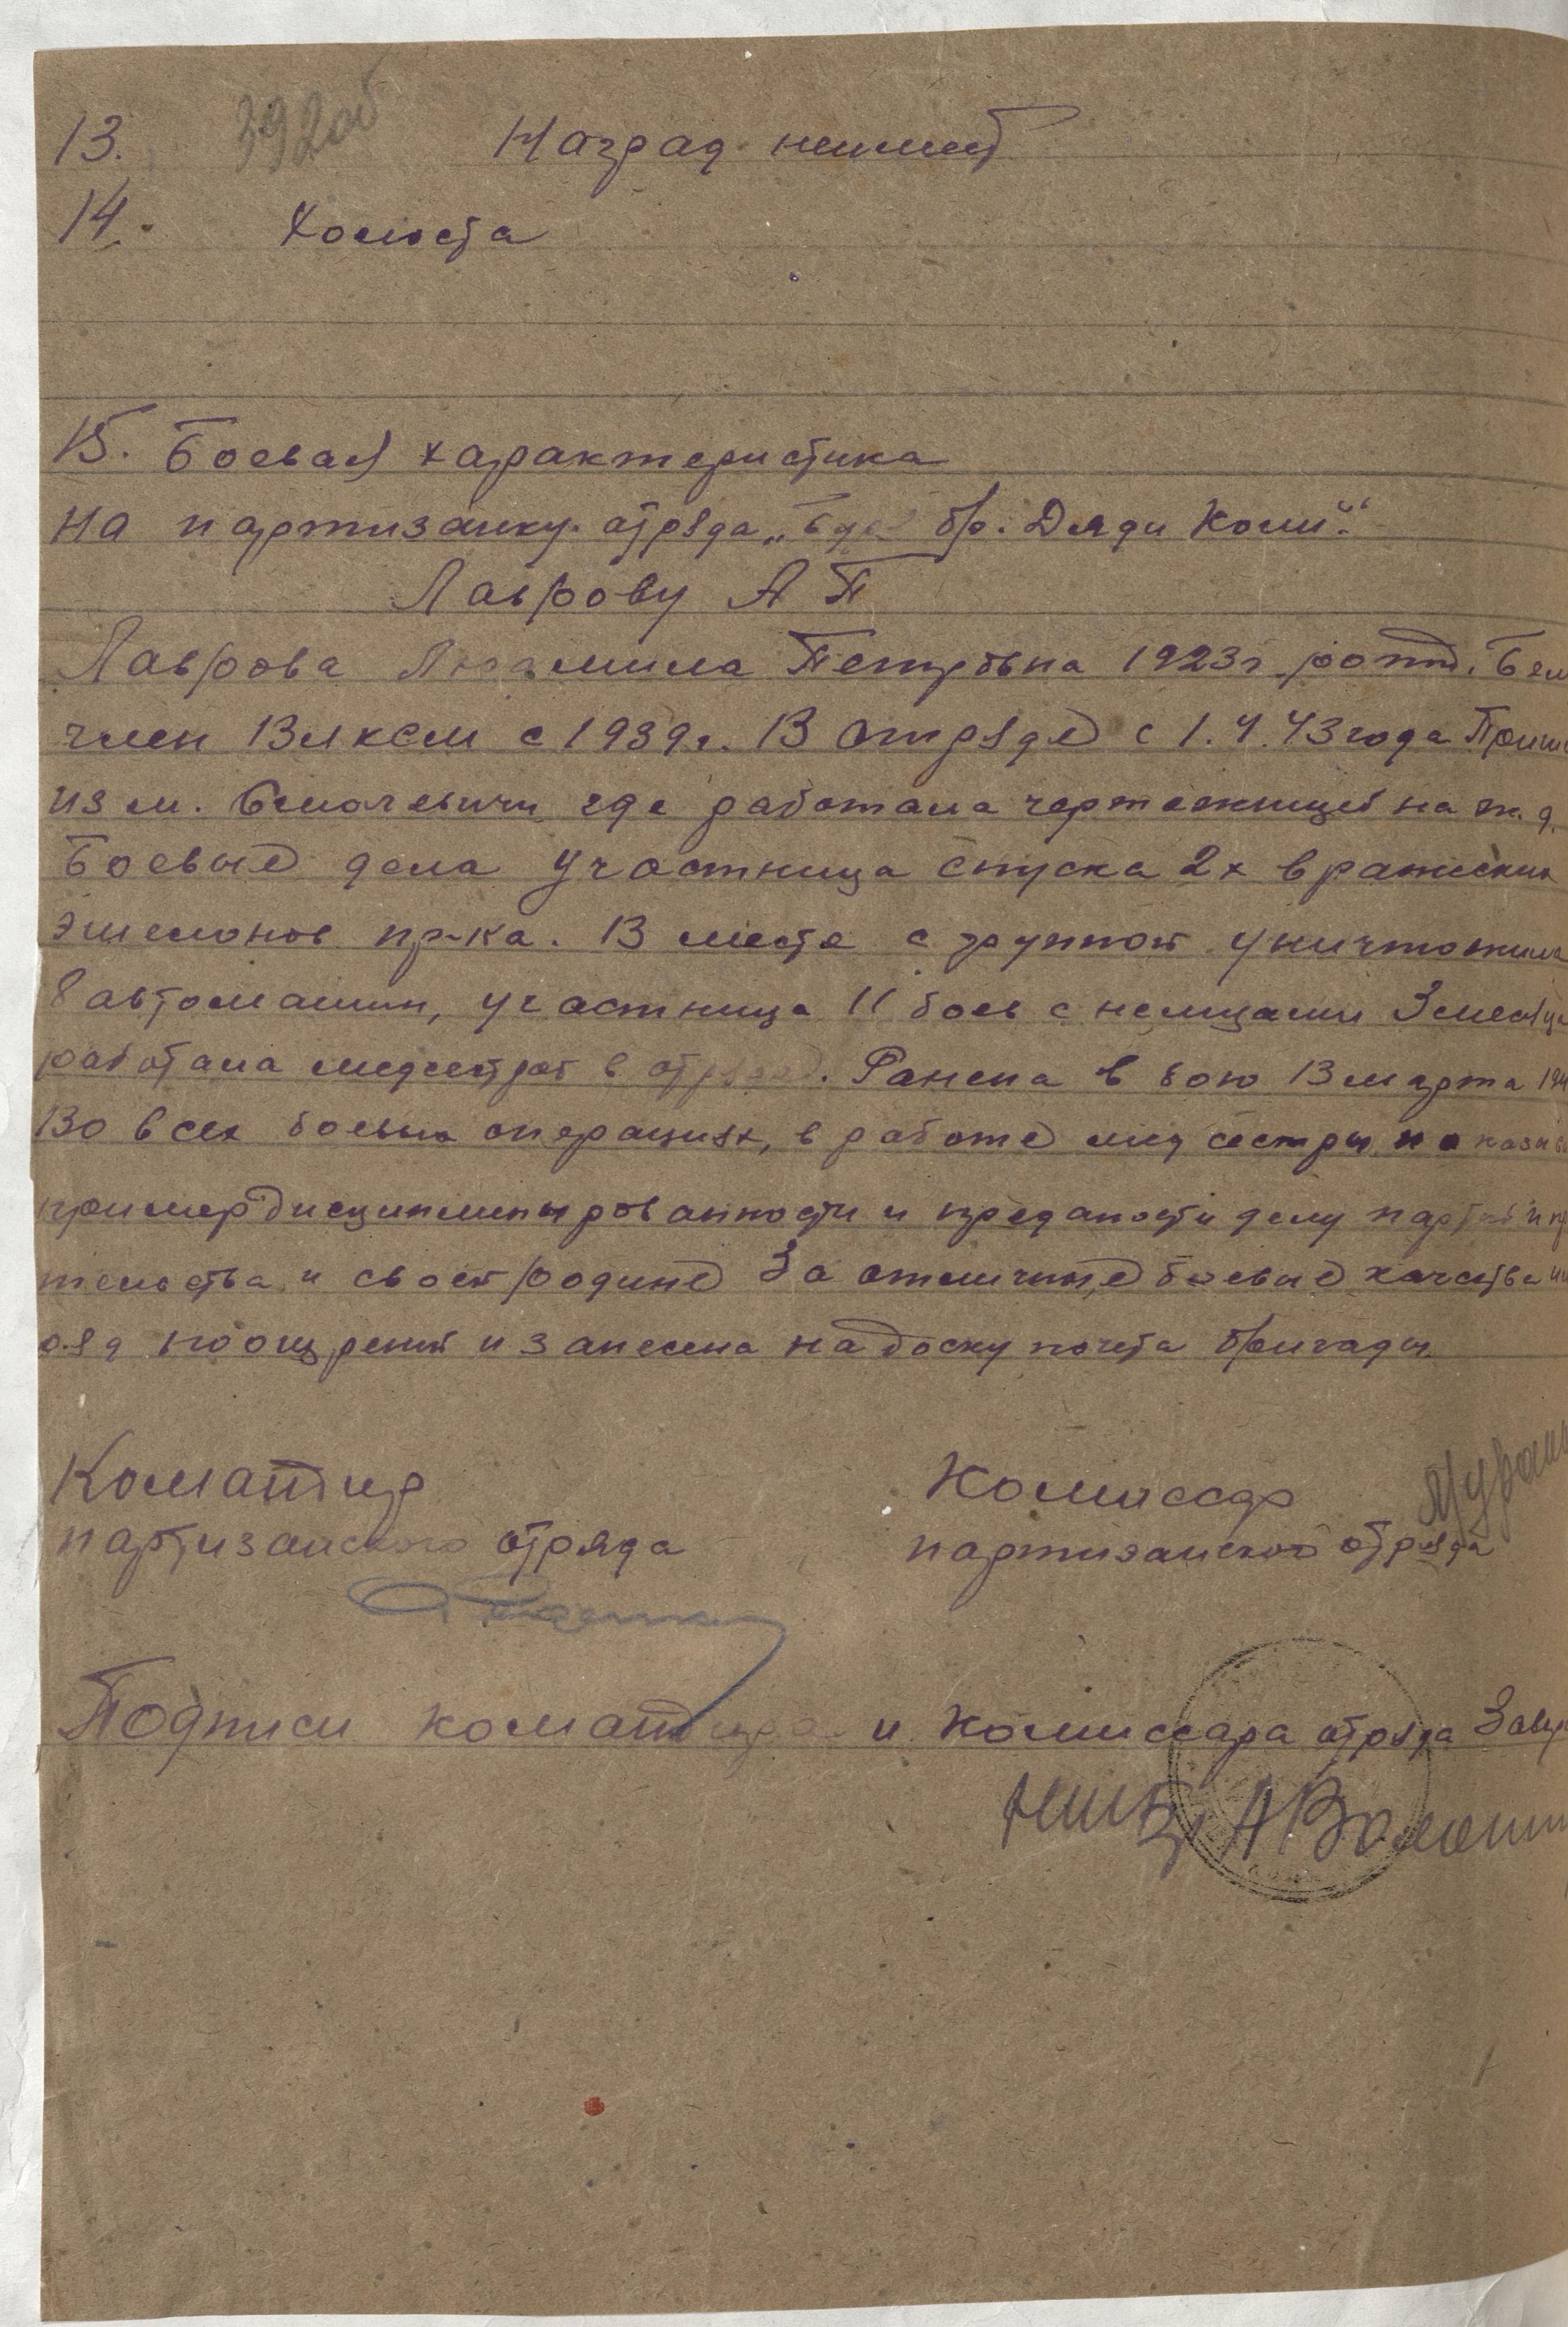 13. 392об Наград неимеет
14. Холоста
15. Боевая характеристика
на партизанку отряда „ бр. Дяди Коли".
Лаврову Л П
Лаврова Людмила Петровна 1923г рожд. Бел
член ВЛКСМ с 1939г. В отряде с 1.4.43 года Приш
из м. Смолевичи где работала чертежницей на ж.д.
Боевые дела участница спуска 2х вражеских
эшелонов пр-ка. В месте с группой уничтожила
8 автомашин, участница 11 боев с немцами 3 месяца
работала медсестрой в отряде. Ранена в бою 13 марта 194
Во всех боевых операциях, в работе мед сестры показыва
пример дисциплинированности и преданости делу партии и пр
тельства и своей родине За отличные боевые качества им
ряд поощрений и занесена на доску почета бригады.
Командир Комиссар
партизанского отряда партизанского отряда
Подписи командира и комиссара отряда Завер